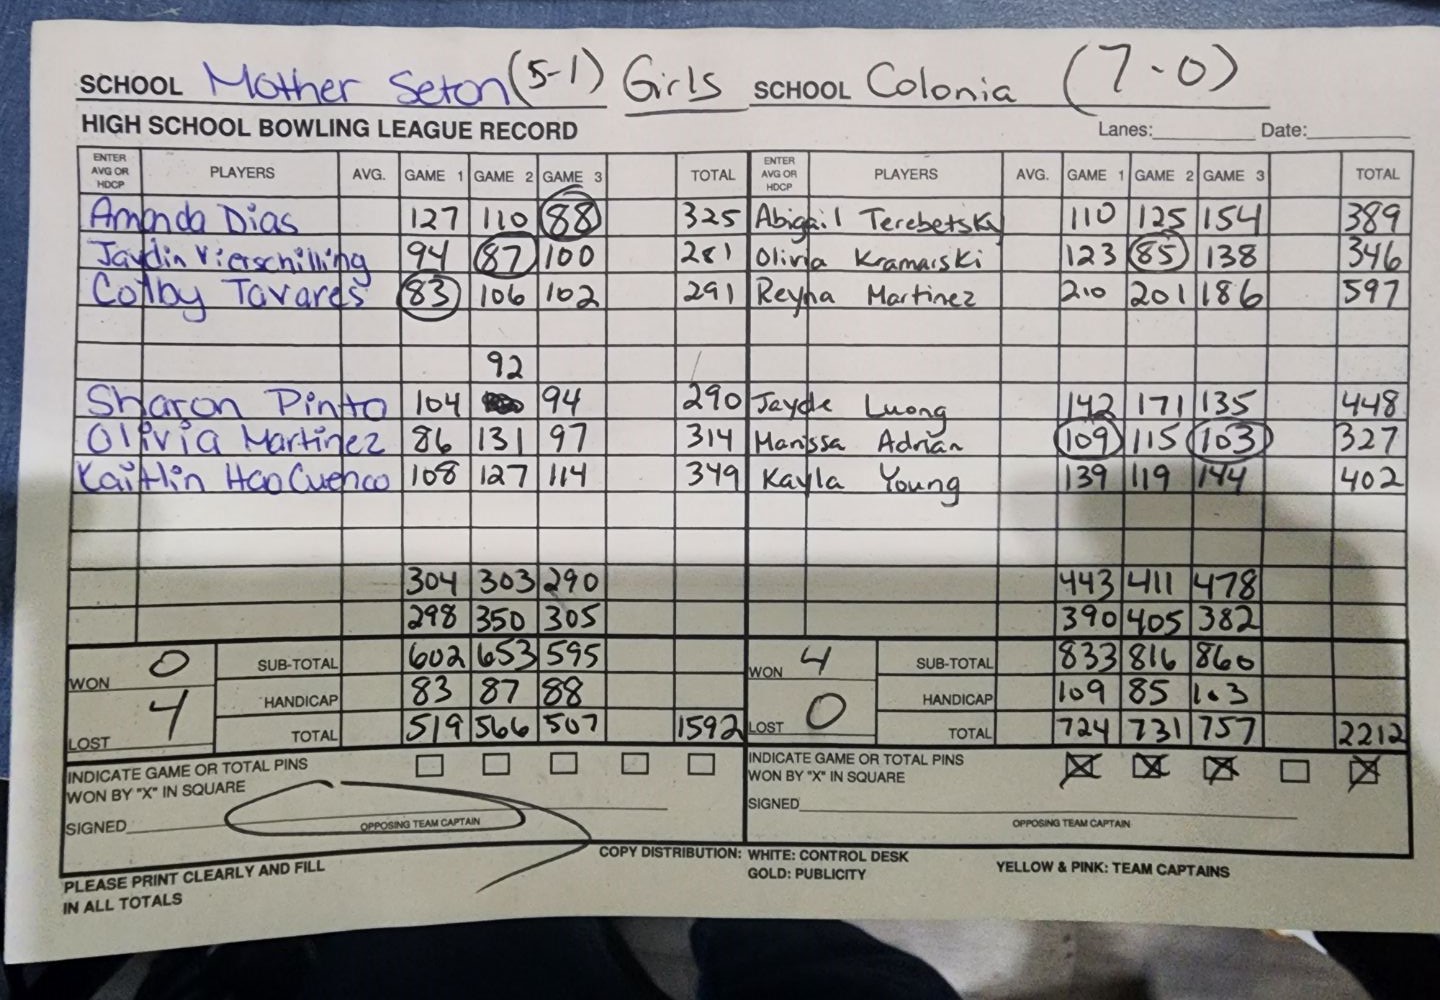 SCHOOL Mother Seton (5-1) Girls SCHOOL Colonia (7-0)
HIGH SCHOOL BOWLING LEAGUE RECORD Lanes: Date:
ENTER AVG OR HDCP PLAYERS AVG. GAME 1 GAME 2 GAME 3 TOTAL ENTER AVG OR HDCP PLAYERS AVG. GAME 1 GAME 2 GAME 3 TOTAL
Amanda Dias 127 110 88 325 Abigail Terebetsky 110 125 154 389
Jaydin Vierschilling 94 87 100 281 Olivia Kramarski 123 85 138 346
Colby Tavares 83 106 102 291 Reyna Martinez 210 201 186 597
92
Sharon Pinto 104 94 290 Jayde Luong 142 171 135 448
Olivia Martinez 86 131 97 314 Marissa Adrian 109 115 103 327
Kaitlin HaoCuenco 108 127 114 349 Kayla Young 139 119 144 402
304 303 290 443 411 478
298 350 305 390 405 382
WON 0 SUB-TOTAL 602 653 595 WON 4 SUB-TOTAL 833 816 860
HANDICAP 83 87 88 HANDICAP 109 85 103
LOST 4 TOTAL 519 566 507 1592 LOST 0 TOTAL 724 731 757 2212
INDICATE GAME OR TOTAL PINS INDICATE GAME OR TOTAL PINS
WON BY "X" IN SQUARE WON BY "X" IN SQUARE
SIGNED SIGNED
OPPOSING TEAM CAPTAIN OPPOSING TEAM CAPTAIN
PLEASE PRINT CLEARLY AND FILL COPY DISTRIBUTION: WHITE: CONTROL DESK YELLOW & PINK: TEAM CAPTAINS
IN ALL TOTALS GOLD: PUBLICITY